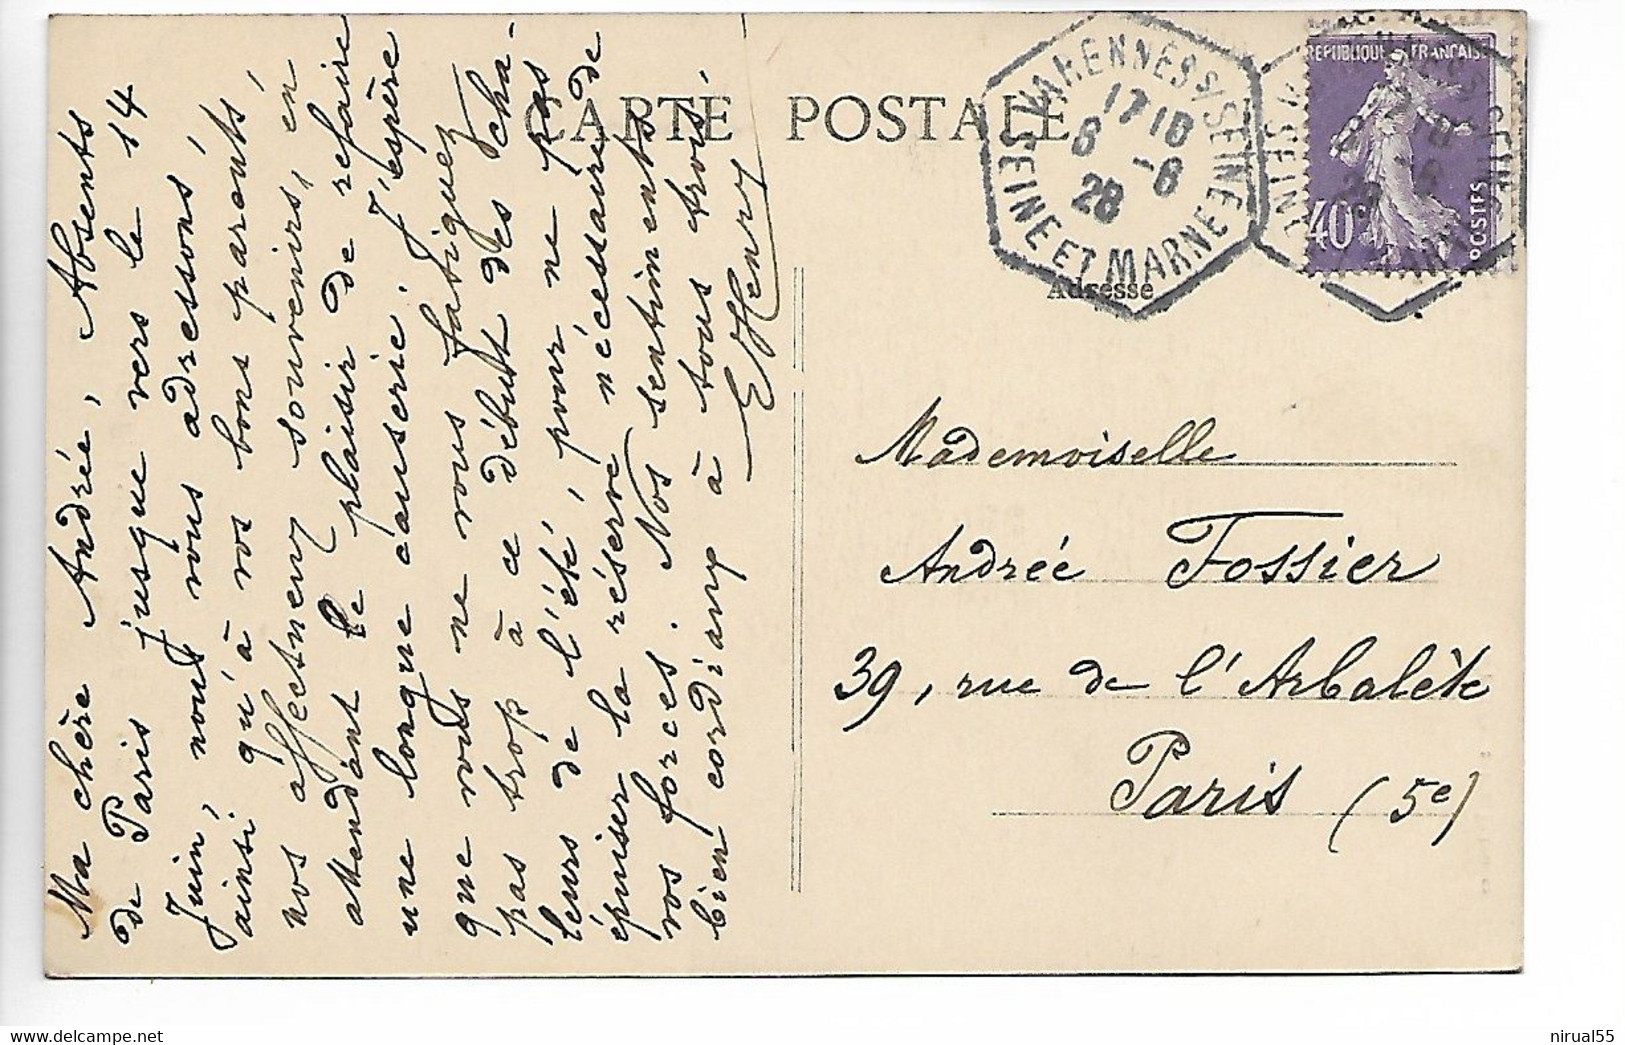 CARTE POSTALE
VARENNES S/ SEINE
17 10
6 -6
28
SEINE ET MARNE
REPUBLIQUE FRANÇAISE
40c
POSTES
Adresse
Ma chère Andrée, Absents
de Paris jusque vers le 14
Juin, nous vous adressons,
ainsi qu'à vos bons parents,
nos affectueux souvenirs, en
attendant le plaisir de refaire
une longue causerie. J'espère
que vous ne vous fatiguez
pas trop à ce début des cha-
leurs de l'été, pour ne pas
épuiser la réserve nécessaire de
vos forces. Nos sentiments
bien cordiaux à tous trois,
E Henry
Mademoiselle
Andrée Fossier
39, rue de l'Arbalète
Paris (5e)
nirual55